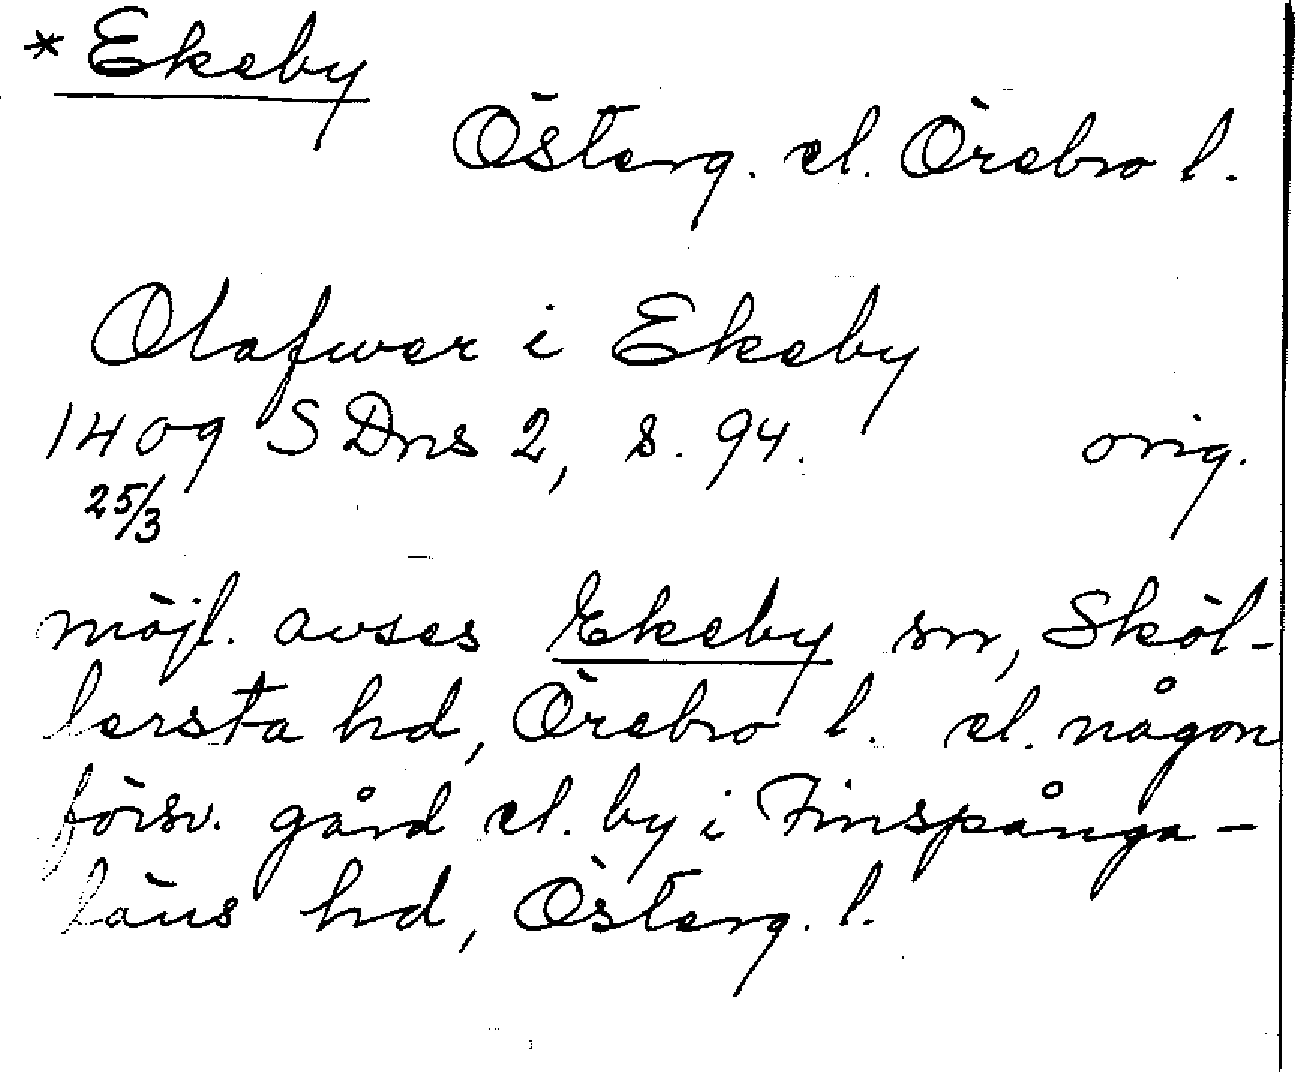 * Ekeby
Österg. el. Örebro l.
Olafwer i Ekeby
1409 SDns 2, s. 94. orig.
25/3
möjl. avses Ekeby sn, Sköl-
lersta hd, Örebro l. el. någon
försv. gård el. by i Finspånga-
läns hd, Österg. l.